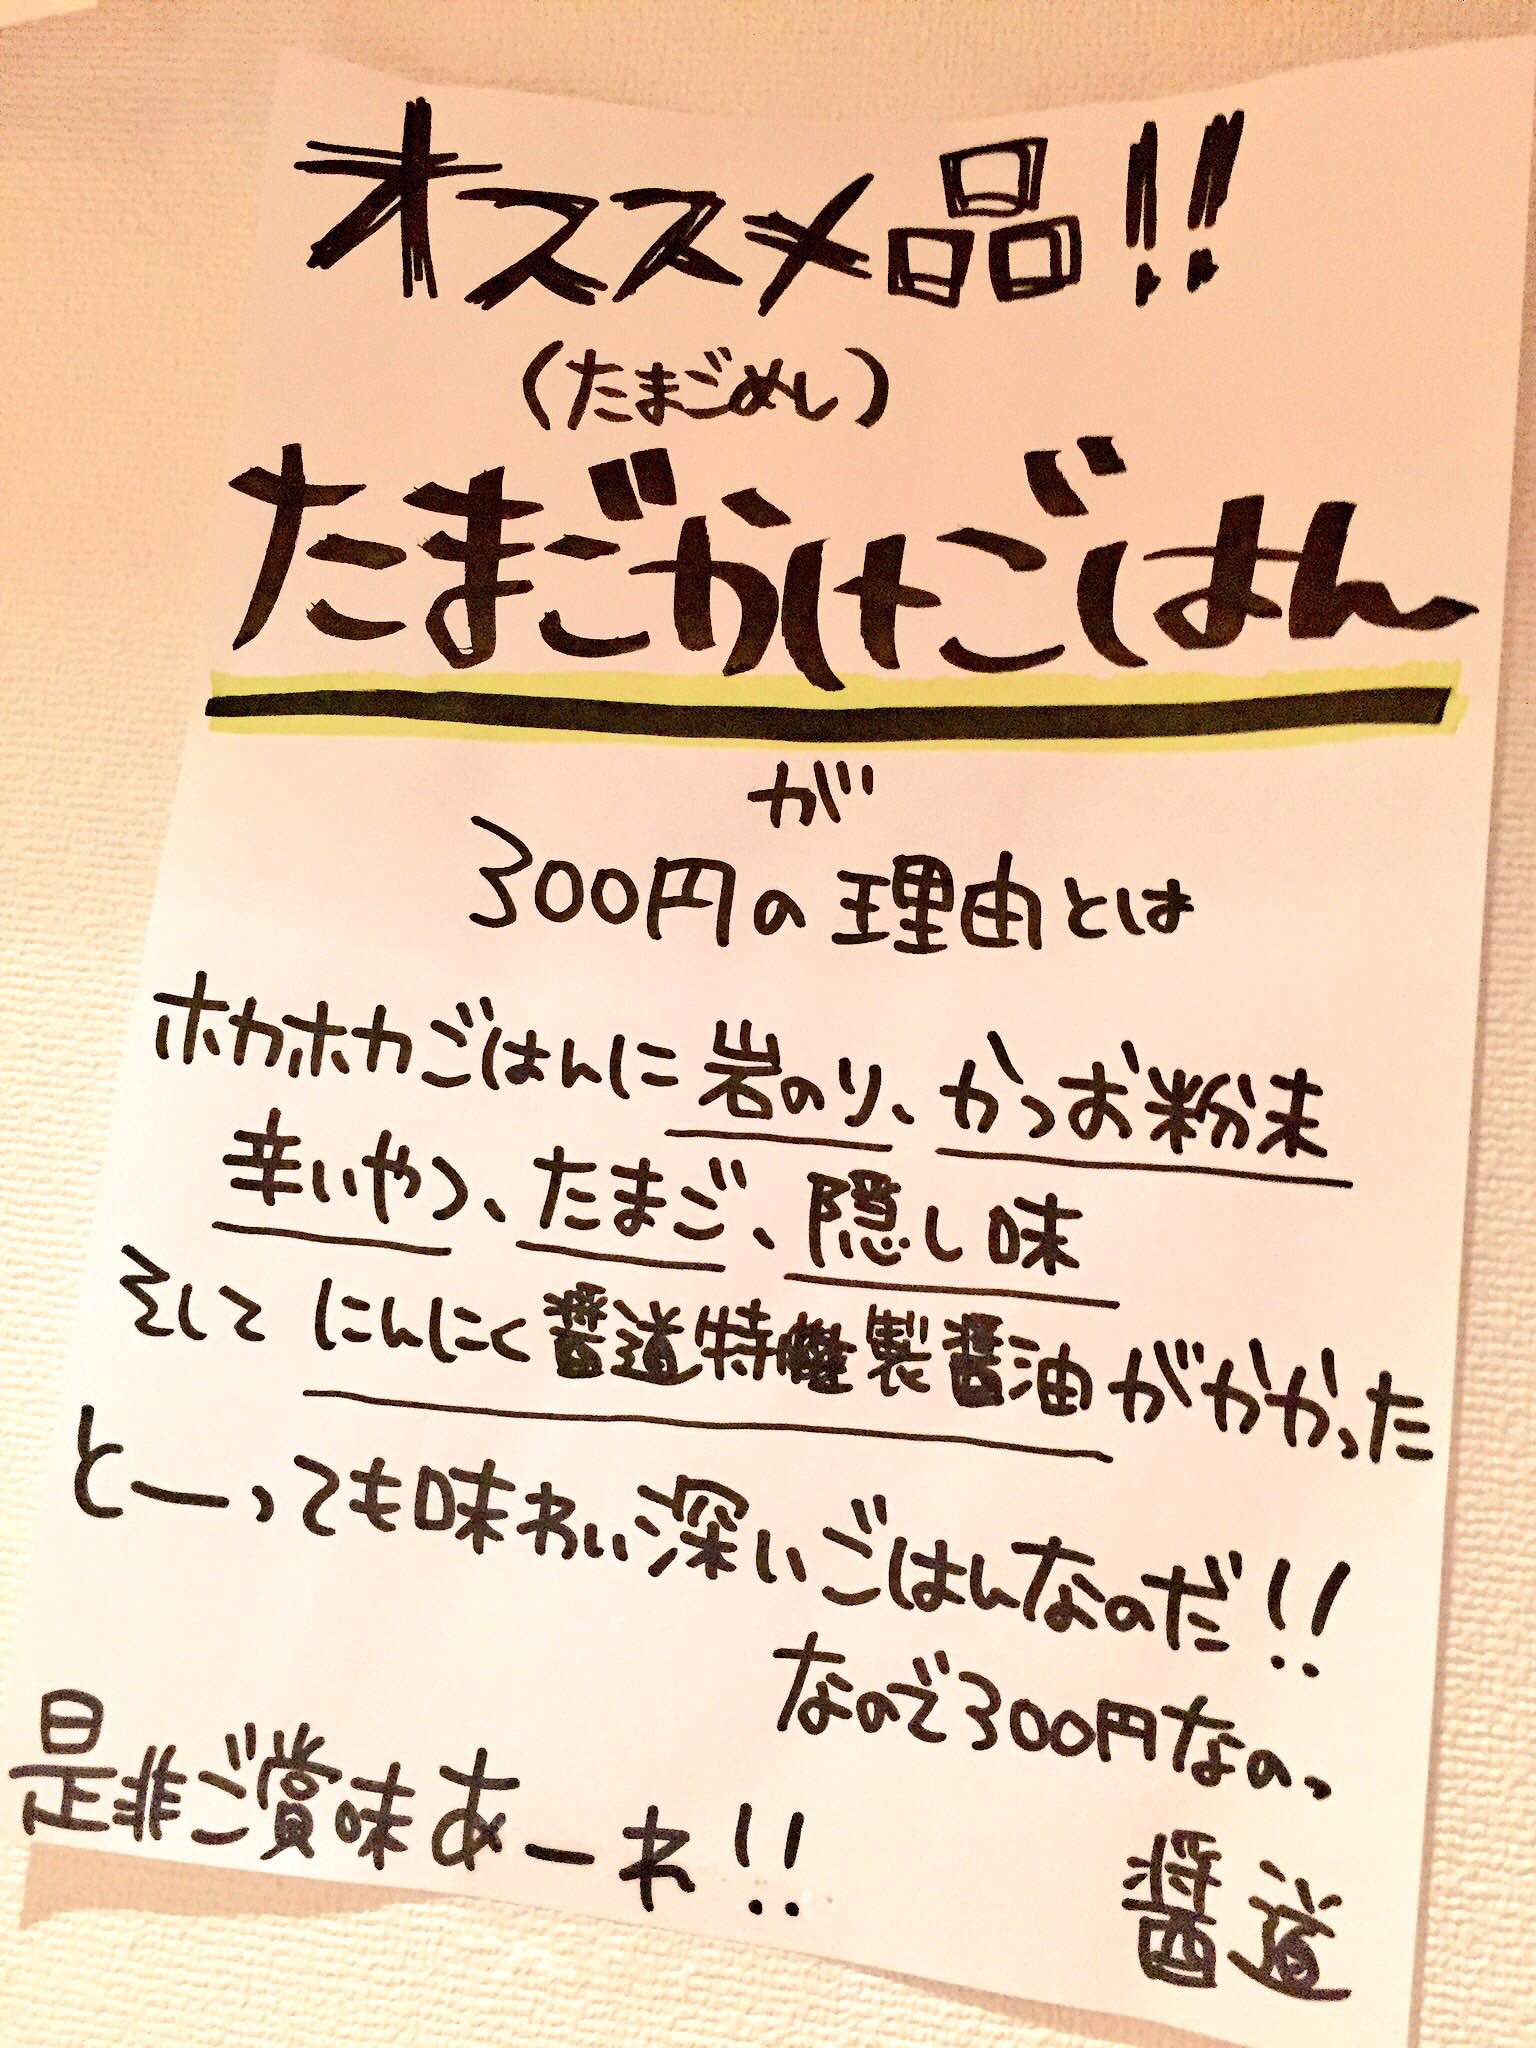 オススメ品!!
(たまごめし)
たまごかけごはん
が
300円の理由とは
ホカホカごはんに岩のり、かつお粉末
辛いやつ、たまご、隠し味
そしてにんにく醤道特製醤油がかかった
とーっても味わい深いごはんなのだ!!
なので300円なのっ
是非ご賞味あーれ!!
醤道